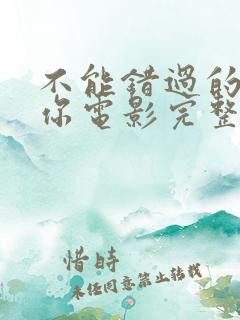 不能错过的
你电影完整
惜时
未经同意禁止转载